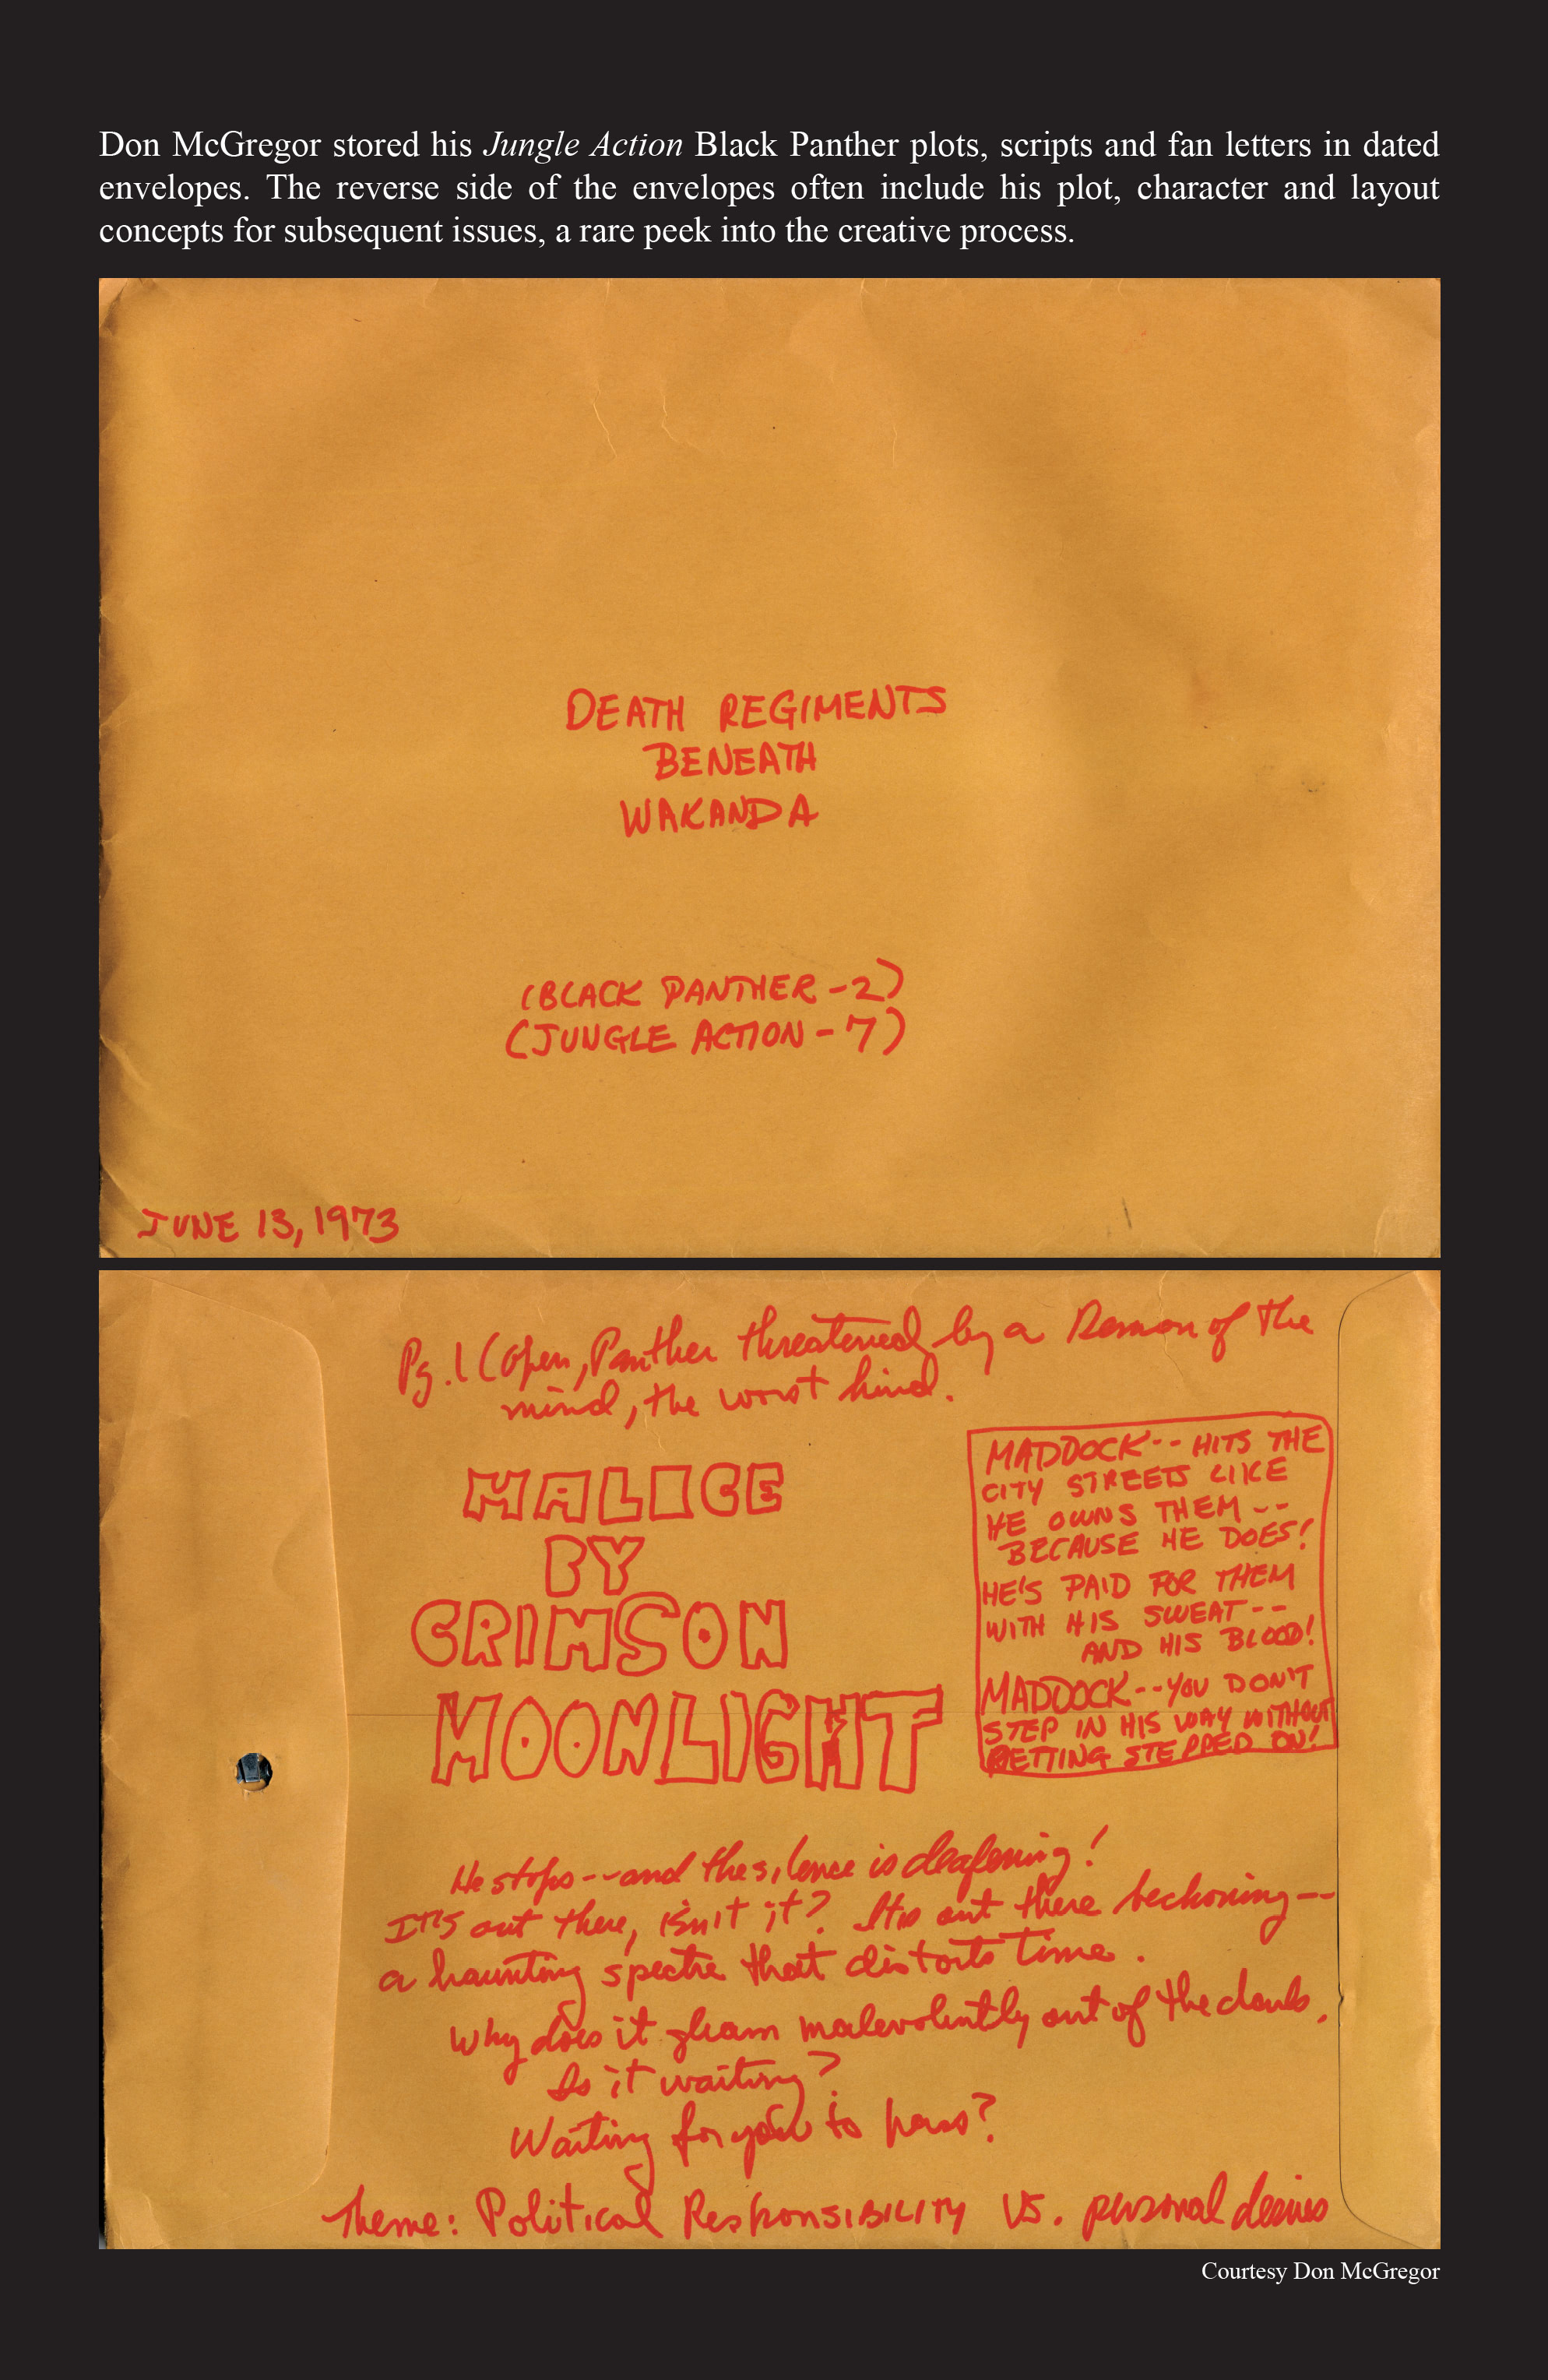 Don McGregor stored his Jungle Action Black Panther plots, scripts and fan letters in dated
envelopes. The reverse side of the envelopes often include his plot, character and layout
concepts for subsequent issues, a rare peek into the creative process.
DEATH REGIMENTS
BENEATH
WAKANDA
(BLACK PANTHER - 2)
(JUNGLE ACTION - 7)
JUNE 13, 1973
Pg. 1 (Open, Panther threatened by a Demon of the
mind, the worst kind.
MALICE
BY
CRIMSON
MOONLIGHT
MADDOCK -- HITS THE
CITY STREETS LIKE
HE OWNS THEM --
BECAUSE HE DOES!
HE'S PAID FOR THEM
WITH HIS SWEAT --
AND HIS BLOOD!
MADDOCK -- YOU DON'T
STEP IN HIS WAY WITHOUT
GETTING STEPPED ON!
He stops -- and the silence is deafening!
It's out there, isn't it? It's out there beckoning --
a haunting spectre that distorts time.
Why does it gleam malevolently out of the clouds.
Is it waiting?
Waiting for you to pass?
Theme: Political Responsibility VS. personal desires
Courtesy Don McGregor